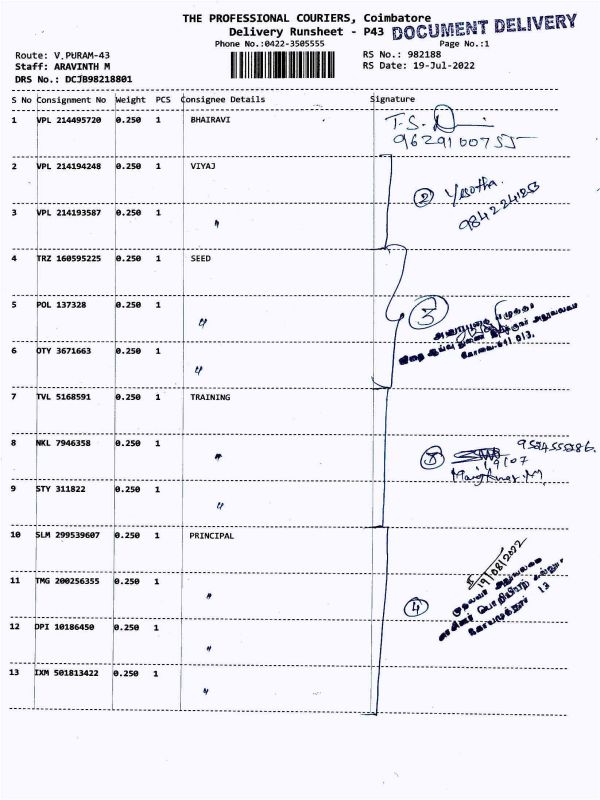 THE PROFESSIONAL COURIERS, Coimbatore
Delivery Runsheet - P43
DOCUMENT DELIVERY
Phone No.:0422-3505555
Page No.:1
Route: V.PURAM-43
RS No.: 982188
Staff: ARAVINTH M
RS Date: 19-Jul-2022
DRS No.: DCJB98218801
S No Consignment No Weight PCS Consignee Details Signature
1 VPL 214495720 0.250 1 BHAIRAVI
T.S.
9629100755
2 VPL 214194248 0.250 1 VIYAJ
2 Yesotha
9842241253
3 VPL 214193587 0.250 1 "
4 TRZ 160595225 0.250 1 SEED
5 POL 137328 0.250 1 "
3
6 OTY 3671663 0.250 1 "
கோவை-641 013.
7 TVL 5168591 0.250 1 TRAINING
8 NKL 7946358 0.250 1 "
19/07
9 STY 311822 0.250 1 "
10 SLM 299539607 0.250 1 PRINCIPAL
19/08/2022
11 TMG 200256355 0.250 1 "
4
12 DPI 10186450 0.250 1 "
13 IXM 501813422 0.250 1 "